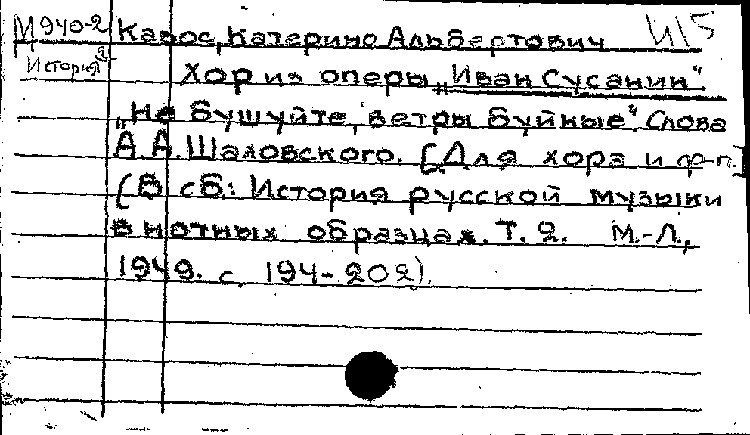 М940-2 Кавос, Катерино Альбертович И15
История 2 Хор из оперы „Иван Сусанин"
„Не бушуйте, ветры буйные". Слова
А.А. Шаховского. [Для хора и ф-п.]
(В сб.: История русской музыки
в нотных образцах. Т. 2. М.-Л.,
1949. с. 194-202).